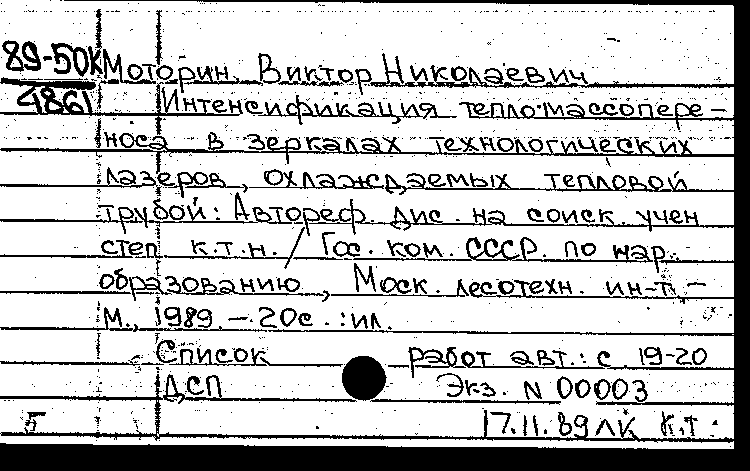 89-50К Моторин Виктор Николаевич
4861 Интенсификация тепломассопере-
носа в зеркалах технологических
лазеров, охлаждаемых тепловой
трубой: Автореф. дис. на соиск. учен
степ к.т.н. / Гос. ком. СССР. по нар.
образованию, Моск. лесотехн. ин-т, -
М., 1989. - 20с. : ил.
Список работ авт.: с 19-20
ДСП Экз. N 00003
5 17.11.89 ЛК К.Т.